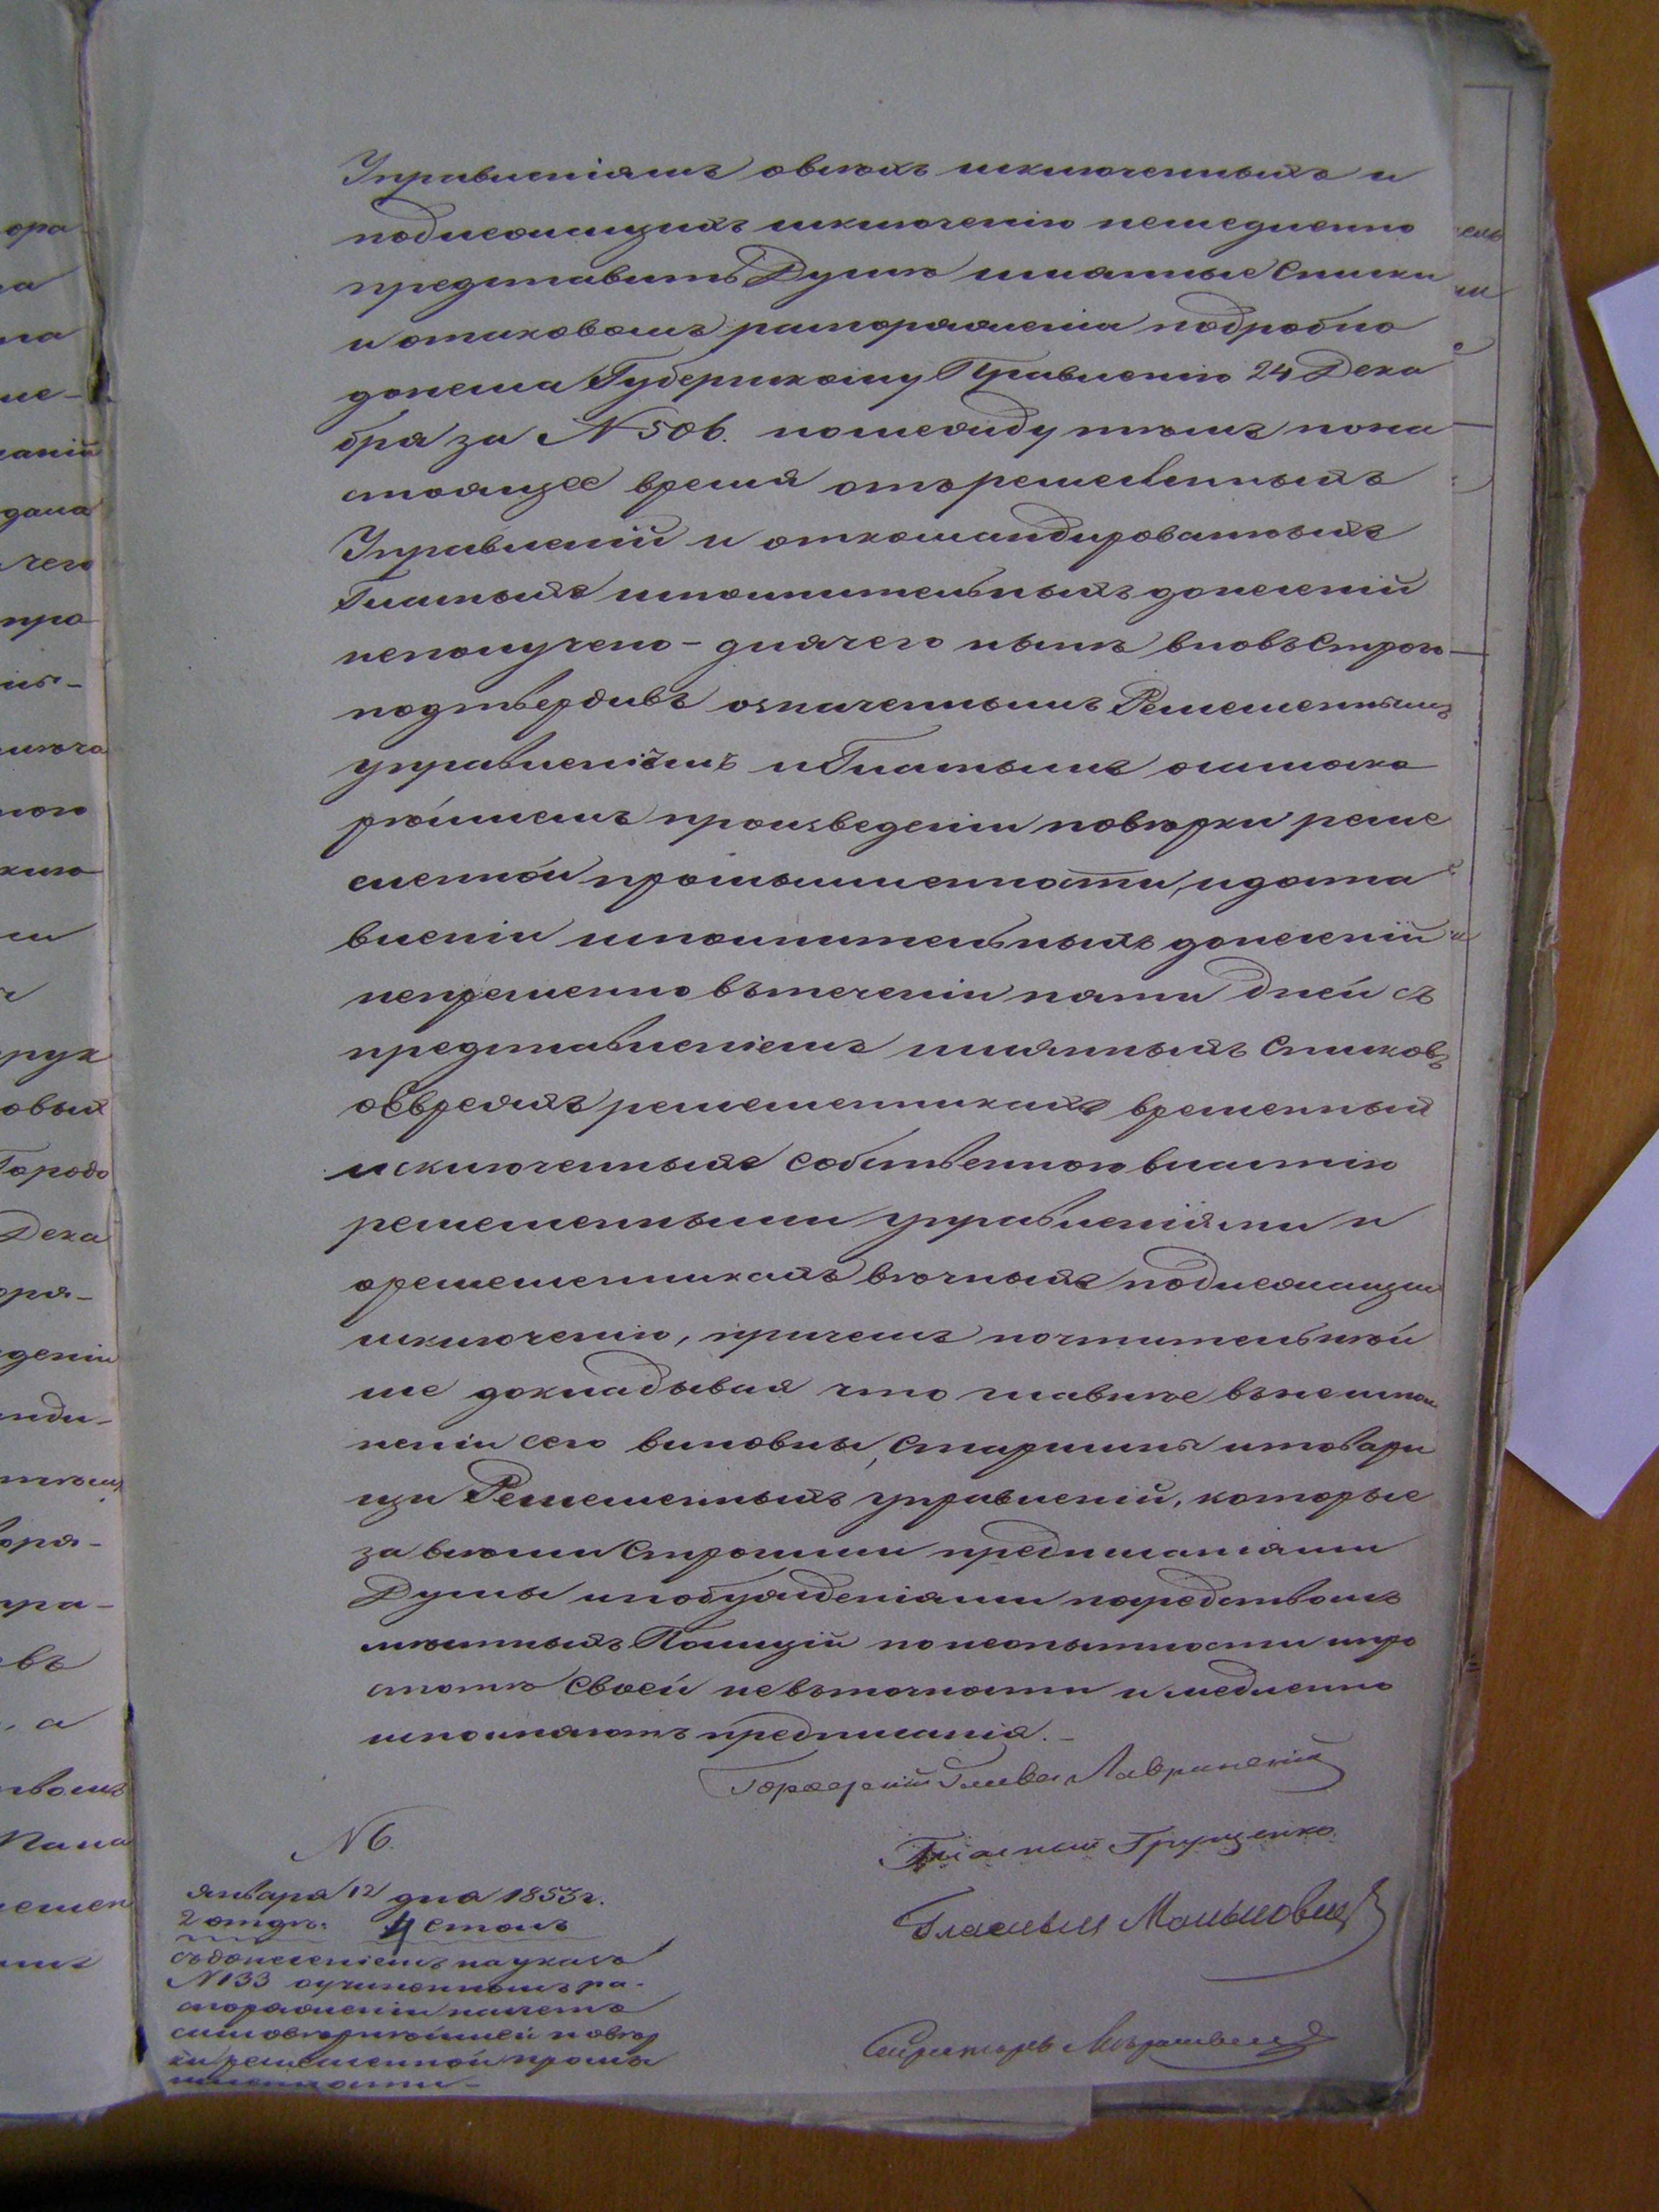 Управленіямъ овсѣхъ исключенныхъ и
подлежащихъ исключенію немедленно
представить Думѣ имянные списки
и отаковомъ распоряженіи подробно
донесла Губернскому Правленію 24 Дека
бря за № 506. но между тѣмъ пона
стоящее время отъ ремесленныхъ
Управленій и откомандированныхъ
Гласныхъ исполнительныхъ донесеній
неполучено - для чего нынѣ вновь строго
подтвердивъ означеннымъ Ремесленнымъ
управленіямъ и Гласнымъ о наискоро
рѣйшемъ произведеніи повѣрки реме
сленной промышленности, и доста
вленіи исполнительныхъ донесеній
непременно въ теченіи пяти дней съ
представленіемъ имянныхъ списковъ
обвсехъ ремесленникахъ временный
исключенныхъ собственною властію
ремесленными управленіями и
оремесленникахъ вѣчныхъ подлежащихъ
исключенію, причемъ почтительнѣй
ше докладывая что главные въ неиспол
неніи сего виновны, старшины и товари
щи Ремесленныхъ управленій, которые
за всѣми строгими предписаніями
Думы и побужденіями посредствомъ
мѣстныхъ Полицій по неопытности и про
стотѣ своей невъточности и медленно
исполняютъ предписанія.-
Городской Глава Лавринскій
Гласный Грущенко
Гласный
Секретарь
№ 6.
Января 12 дня 1853 г.
2 отдѣ: 4 столъ
съ донесеніемъ на указъ
№ 133 о учиненномъ ра-
споряженіи насчетъ
скорѣйшей повѣр
ки ремесленной промы
шленности-
ора
на
ме-
даній
дала
чего
про
ключа
рук
овый
Городо
Дека
бря-
деніи
анди-
бря-
пра-
въ
, а
Пала
ремеслен